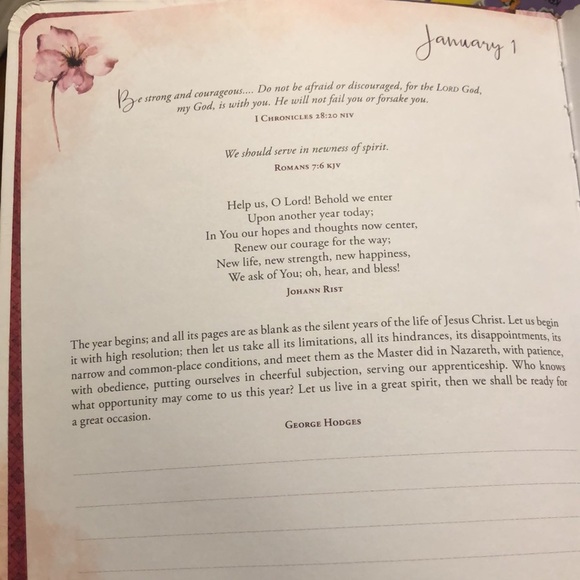 January 1
Be strong and courageous.... Do not be afraid or discouraged, for the LORD God,
my God, is with you. He will not fail you or forsake you.
1 CHRONICLES 28:20 NIV
We should serve in newness of spirit.
ROMANS 7:6 KJV
Help us, O Lord! Behold we enter
Upon another year today;
In You our hopes and thoughts now center,
Renew our courage for the way;
New life, new strength, new happiness,
We ask of You; oh, hear, and bless!
JOHANN RIST
The year begins; and all its pages are as blank as the silent years of the life of Jesus Christ. Let us begin
it with high resolution; then let us take all its limitations, all its hindrances, its disappointments, its
narrow and common-place conditions, and meet them as the Master did in Nazareth, with patience,
with obedience, putting ourselves in cheerful subjection, serving our apprenticeship. Who knows
what opportunity may come to us this year? Let us live in a great spirit, then we shall be ready for
a great occasion.
GEORGE HODGES